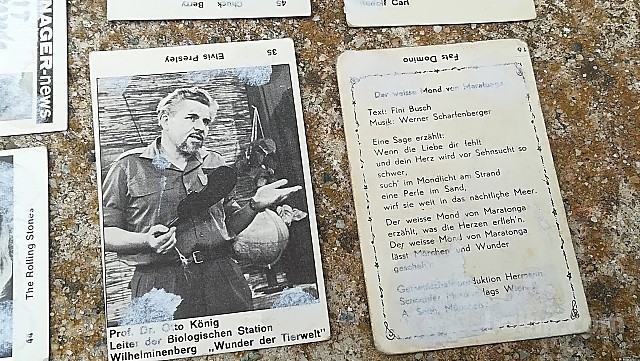 45 Chuck Berry
Carl
NAGER-news
35 Elvis Presley
Prof. Dr. Otto König
Leiter der Biologischen Station
Wilhelminenberg „Wunder der Tierwelt"
44 The Rolling Stones
Fats Domino
Der weisse Mond von Maratonga
Text: Fini Busch
Musik: Werner Scharfenberger
Eine Sage erzählt:
Wenn die Liebe dir fehlt
und dein Herz wird vor Sehnsucht so
schwer,
such' im Mondlicht am Strand
eine Perle im Sand,
wirf sie weit in das nächtliche Meer.
Der weisse Mond von Maratonga
erzählt, was die Herzen erfleh'n.
Der weisse Mond von Maratonga
lässt Märchen und Wunder
gescheh'n.
Hermann
Wien
A.